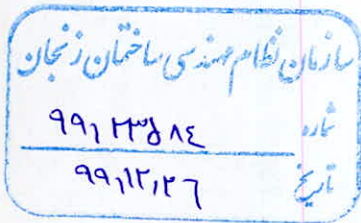 سازمان نظام مهندسی ساختمان زنجان
شماره ۹۹,۲۳۵۸۴
تاریخ ۹۹,۱۲,۲۶